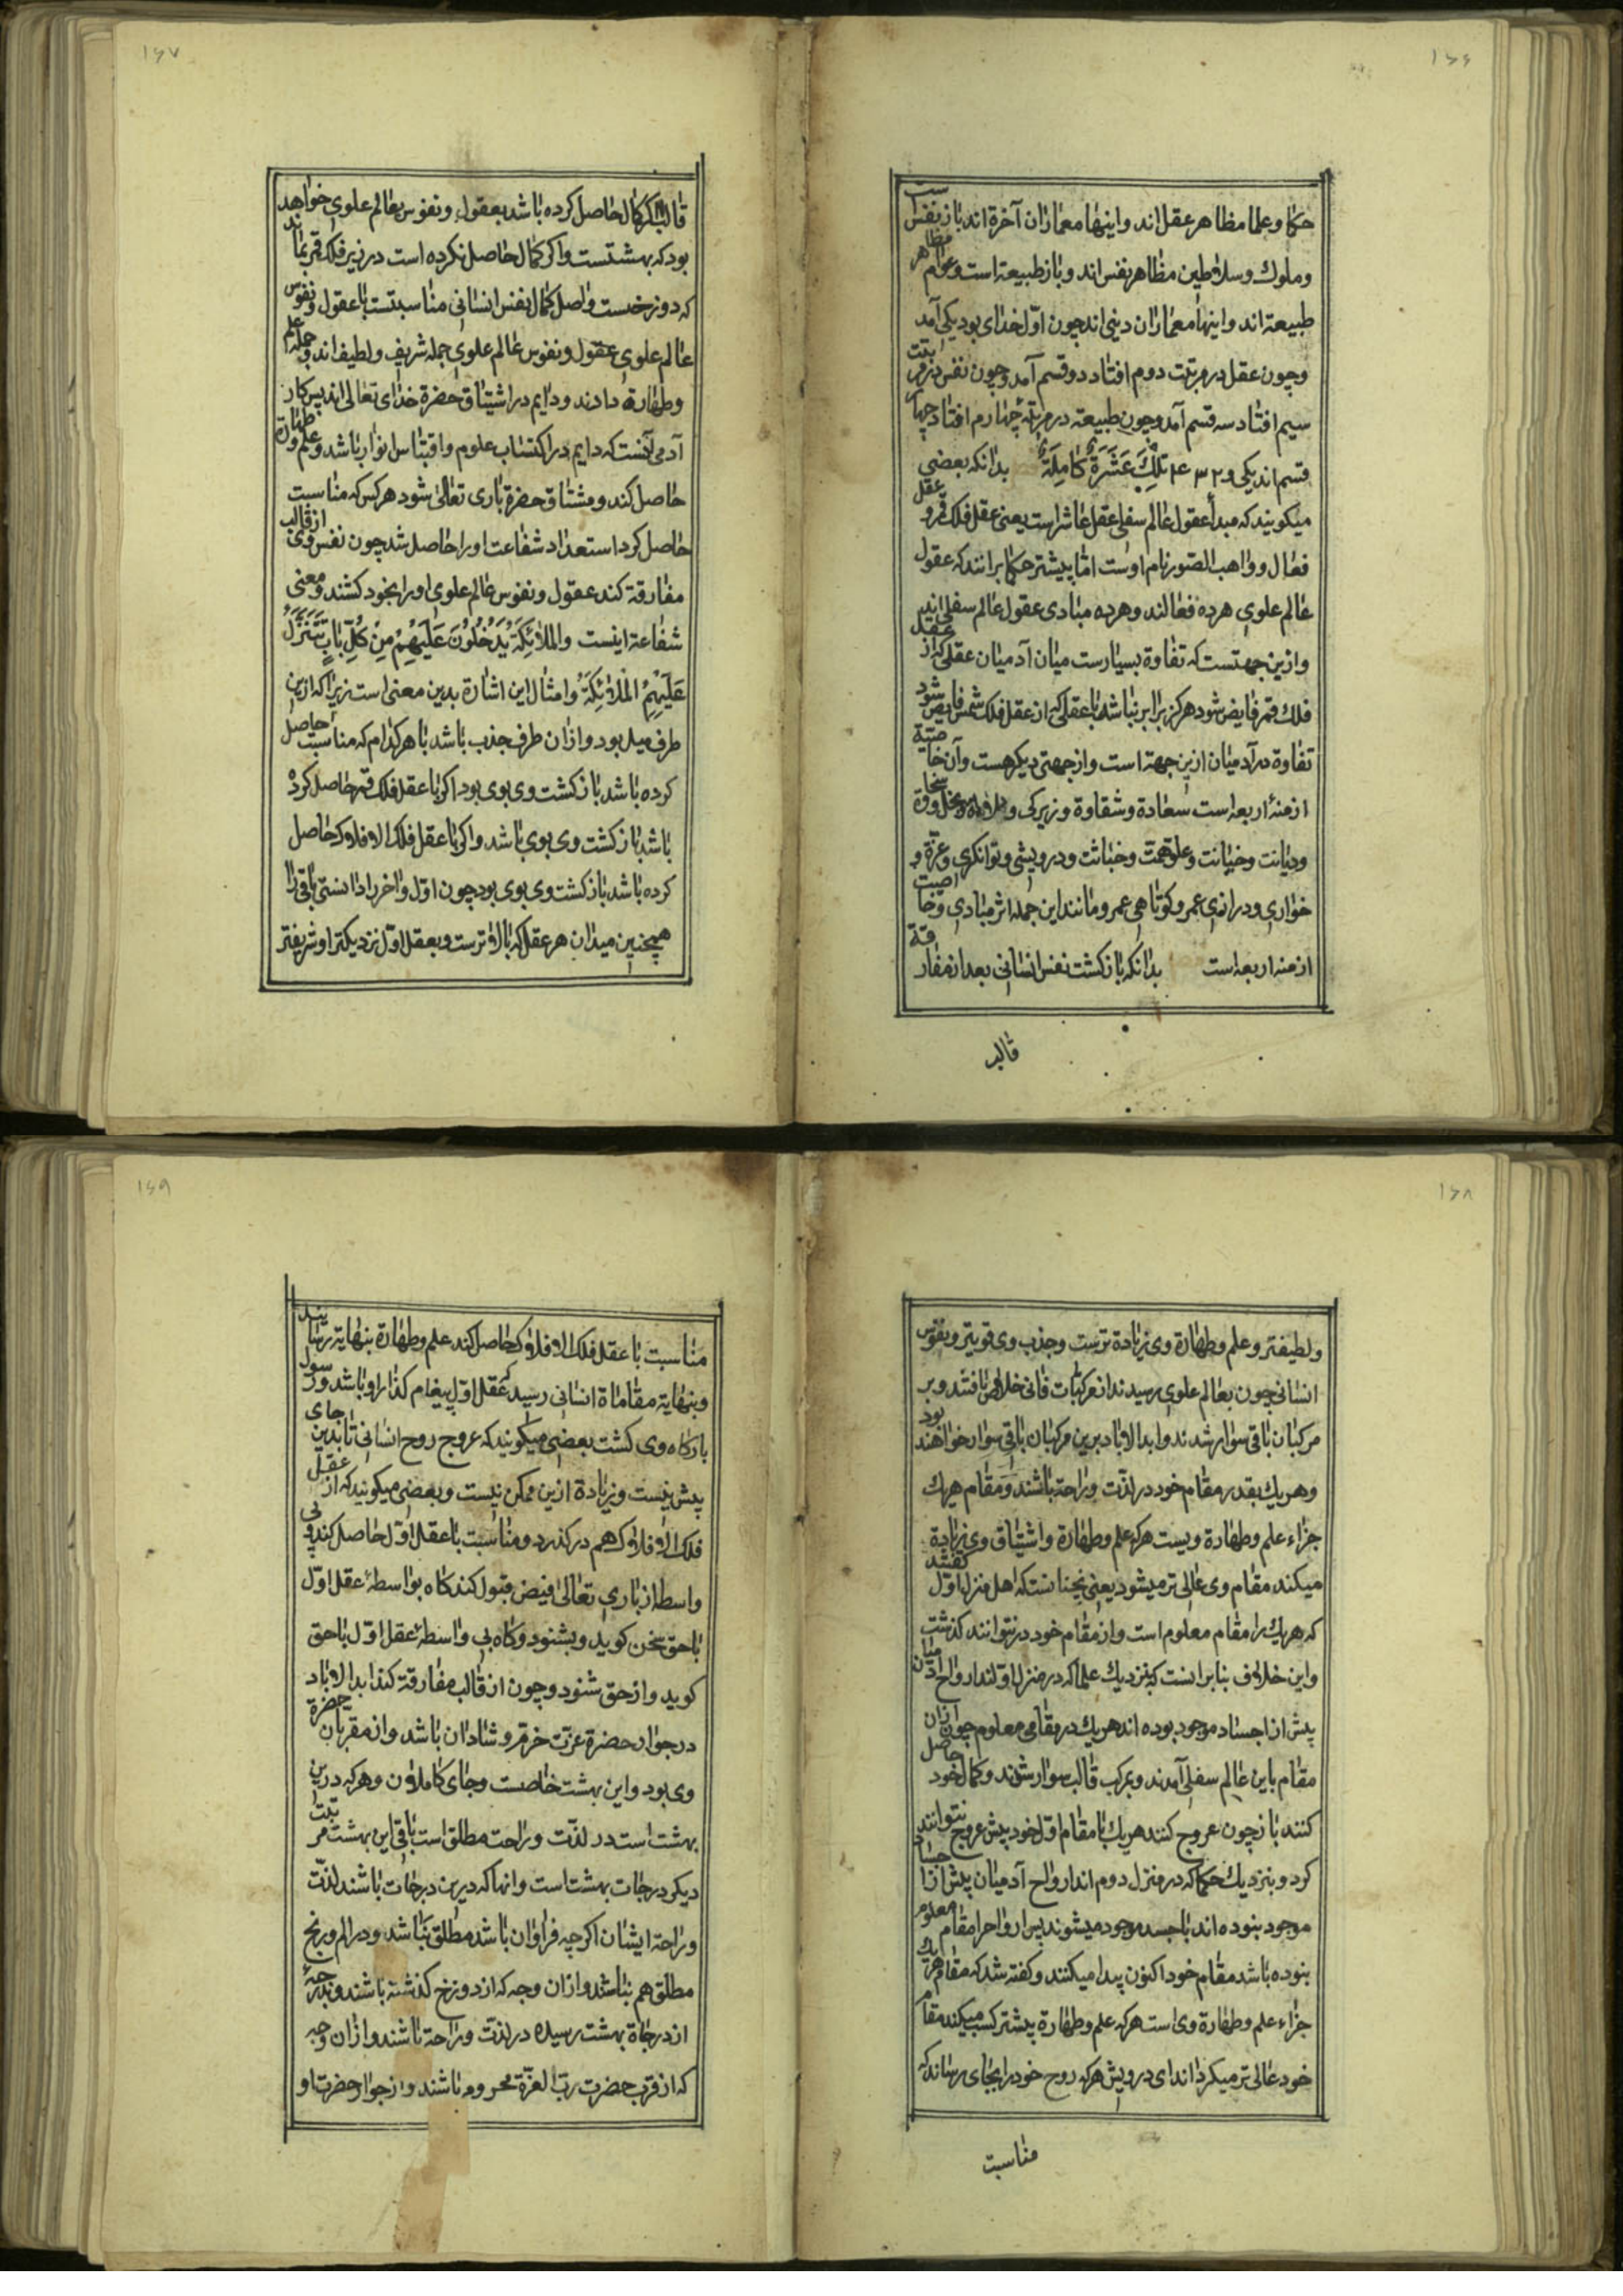 ۱۶۶
حکما و علما مظاهر عقل اند و اینها معماران آخرة اند باز نفس است
و ملوك و سلاطین مظاهر نفس اند و باز طبیعة است و عوام مظاهر
طبیعة اند و اینها معماران دینی اند چون اوّل خدای بود یکی آمد
و چون عقل در مرتبت دوم افتاد دو قسم آمد و چون نفس در مرتبت
سیم افتاد سه قسم آمد و چون طبیعة در مرتبۀ چهارم افتاد چهار
قسم اند یکی و ۲ ۳ ۴ تِلْكَ عَشَرَةٌ كَامِلَةٌ بدانکه بعضی
میکویند که مبدأ عقول عالم سفلی عقل عاشر است یعنی عقل فلك قمر و عقل
فعال و واهب الصور نام اوست امّا بیشتر حکما برانند که عقول
عالم علوی هر ده فعالند و هر ده مبادی عقول عالم سفلی اند
و ازین جهتست که تفاوة بسیارست میان آدمیان عقلی که از عقل
فلك قمر فایض شود هرکز برابر نباشد با عقلی که از عقل فلك شمس فایض شود
تفاوة در آدمیان ازین جهة است و از جهتی دیکر هست و آن خاصیّة
ازمنۀ اربعه است سعادة و شقاوة و زیرکی و بلادة و بخل و سخاوة
و دیانت و خیانت و علوّ همّت و خباثت و درویشی و توانکری و عزّة و
خواری و درازی عمر و کوتاهی عمر و مانند این جمله اثر مبادی و خاصیت
ازمنه اربعه است بدانکه باز کشت نفس انسانی بعد از مفارقة
قالب
۱۶۷
قالب اکر کمال حاصل کرده باشد بعقول و نفوس بعالم علوی خواهد
بود که بهشتست و اکر کمال حاصل نکرده است در زیر فلك قمر بماند
که دوزخست و اصل کمال نفس انسانی مناسبتست با عقول و نفوس
عالم علوی عقول و نفوس عالم علوی جمله شریف و لطیف اند و جمله علم
و طهارة دادند و دایم در اشتیاق حضرة خدای تعالی اند پس کار
آدمی آنست که دایم در اکتساب علوم و اقتباس انوار باشد و علم و طهارة
حاصل کند و مشتاق حضرة باری تعالی شود هر کس که مناسبت
حاصل کرد استعداد شفاعت او را حاصل شد چون نفس وی از قالب
مفارقة کند عقول و نفوس عالم علوی او را بخود کشند و معنی
شفاعة اینست والملائِكَةُ يَدْخُلُونَ عَلَيْهِمْ مِنْ كُلِّ بَابٍ تَتَنَزَّلُ
عَلَيْهِمُ الْمَلَائِكَةُ و امثال این اشارة بدین معنی است زیرا که ازین
طرف میل بود و ازان طرف جذب باشد با هر کدام که مناسبت حاصل
کرده باشد باز کشت وی بوی بود اکر با عقل فلك قمر حاصل کرده
باشد باز کشت وی بوی باشد و اکر با عقل فلك الافلاك حاصل
کرده باشد باز کشت وی بوی بود چون اوّل و آخر را دانستی باقی را
همچنین میدان هر عقل که بالاترست و بعقل اوّل نزدیکتر او شریفتر
۱۶۸
و لطیفتر و علم و طهارة وی زیادة ترست و جذب وی قویتر و نفوس
انسانی چون بعالم علوی رسیدند از مرکبات فانی خلاص یافتند و بر
مرکبان باقی سوار شدند و ابد الاباد برین مرکبان باقی سوار خواهند بود
و هر یك بقدر مقام خود در لذّت و راحة باشند و مقام هر یك
جزاء علم و طهارة ویست هرکه علم و طهارة و اشتیاق وی زیادة
میکند مقام وی عالی تر میشود یعنی نچنانستکه اهل منزل اوّل کفتند
که هر یك را مقام معلوم است و از مقام خود در نتوانند کذشت
و این خلاف بنابر انست که بنزدیك علما که در منزل اوّلند ارواح آدمیان
پیش از اجساد موجود بوده اند هر یك در مقامی معلوم چون ازان
مقام باین عالم سفلی آمدند و بمرکب قالب سوار شوند و کمال خود حاصل
کنند باز چون عروج کنند هر یك با مقام اوّل خود پیش عروج نتوانند
کرد و بنزدیك حکما که در منزل دوم اند ارواح آدمیان پیش از اجساد
موجود نبوده اند با جسد موجود میشوند پس ارواح را مقام معلوم
نبوده باشد مقام خود اکنون پیدا میکنند و کفته شد که مقام هر یك
جزاء علم و طهارة وی است هرکه علم و طهارة بیشتر کسب میکند مقام
خود عالی تر میکرداند ای درویش هرکه روح خود را بجای رساند که
مناسبت
۱۶۹
مناسبت با عقل فلك الافلاك حاصل کند علم و طهارة بنهایة رسانید
و بنهایة مقاماة انسانی رسید عقل اوّل پیغام کذار او باشد و رسول
بارکاه وی کشت بعضی میکویند که عروج روح انسانی تا بدین جای
پیش نیست و زیادة ازین ممکن نیست و بعضی میکویند که از عقل
فلك الافلاك هم درکذرد و مناسبت با عقل اوّل حاصل کند و بی
واسطه از باری تعالی فیض قبول کند کاه بواسطۀ عقل اوّل
با حق سخن کوید و بشنود و کاه بی واسطۀ عقل اوّل با حق
کوید و از حق شنود و چون از قالب مفارقة کند ابد الاباد
در جوار حضرة عزّت خرّم و شادان باشد و از مقربان حضرة
وی بود و این بهشت خاصست و جای کاملان و هرکه درین
بهشت است در لذّت و راحت مطلق است باقی این بهشت مرتبت
دیکر درجات بهشت است و انها که درین درجات باشند لذّت
و راحة ایشان اکرچه فراوان باشد مطلق نباشد و در الم و رنج
مطلق هم نباشد و ازان وجه که از دوزخ کذشته باشند و بدرجۀ
از درجاة بهشت رسیده در لذّت و راحة باشند و ازان وجه
که از قرب حضرت ربّ العزّة محروم باشند و از جوار حضرت او